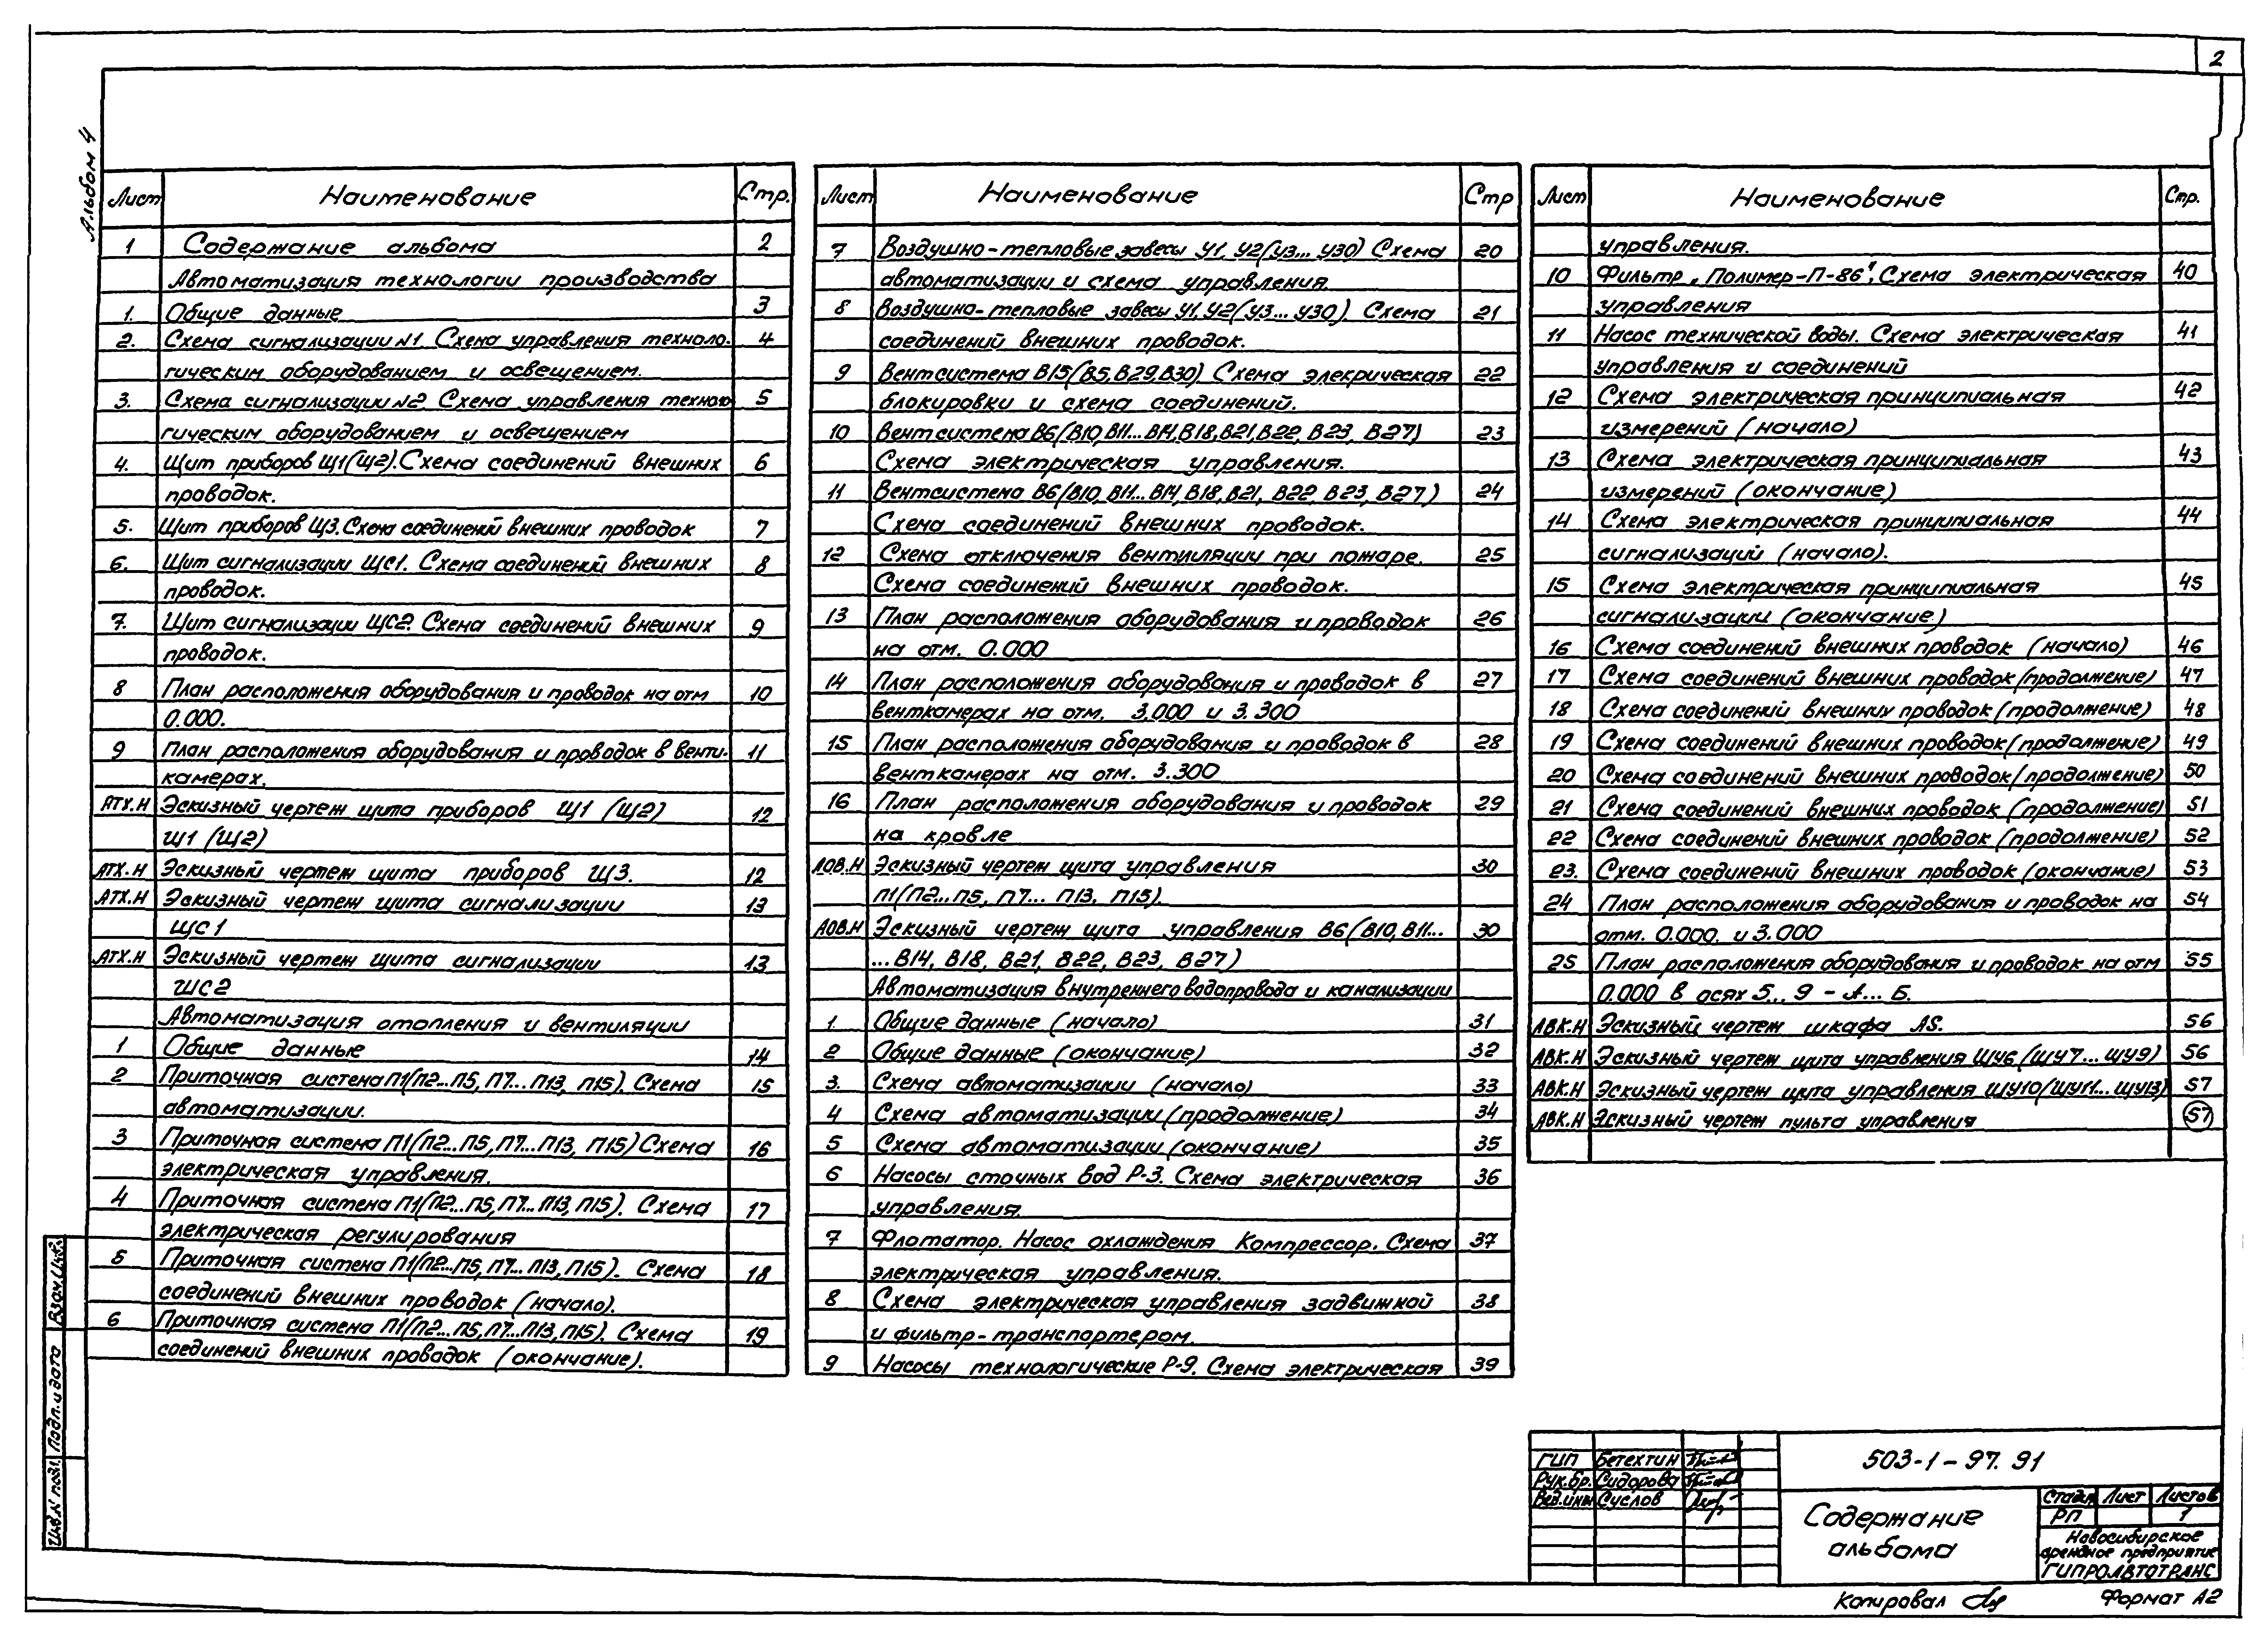 2
Альбом 4
Лист Наименование Стр.
1 Содержание альбома 2
Автоматизация технологии производства
1. Общие данные 3
2. Схема сигнализации N1. Схема управления техноло- 4
гическим оборудованием и освещением.
3. Схема сигнализации N2. Схема управления техноло 5
гическим оборудованием и освещением
4. Щит приборов Щ1(Щ2). Схема соединений внешних 6
проводок.
5. Щит приборов Щ3. Схема соединений внешних проводок 7
6. Щит сигнализации ЩС1. Схема соединений внешних 8
проводок.
7. Щит сигнализации ЩС2. Схема соединений внешних 9
проводок.
8 План расположения оборудования и проводок на отм 10
0.000.
9 План расположения оборудования и проводок в венти- 11
камерах.
АТХ.Н Эскизный чертеж щита приборов Щ1 (Щ2) 12
Щ1 (Щ2)
АТХ.Н Эскизный чертеж щита приборов Щ3. 12
АТХ.Н Эскизный чертеж щита сигнализации 13
ЩС1
АТХ.Н Эскизный чертеж щита сигнализации 13
ЩС2
Автоматизация отопления и вентиляции
1 Общие данные 14
2 Приточная система П1(П2...П5, П7...П13, П15). Схема 15
автоматизации.
3 Приточная система П1(П2...П5, П7...П13, П15) Схема 16
электрическая управления.
4 Приточная система П1(П2...П5, П7...П13, П15). Схема 17
электрическая регулирования
5 Приточная система П1(П2...П5, П7...П13, П15). Схема 18
соединений внешних проводок (начало).
6 Приточная система П1(П2...П5, П7...П13, П15). Схема 19
соединений внешних проводок (окончание).
Лист Наименование Стр
7 Воздушно-тепловые завесы У1, У2(У3...У30) Схема 20
автоматизации и схема управления.
8 Воздушно-тепловые завесы У1, У2(У3...У30). Схема 21
соединений внешних проводок.
9 Вентсистема В15(В5, В29, В30). Схема элекрическая 22
блокировки и схема соединений.
10 Вентсистема В6(В10, В11...В14, В18, В21, В22, В23, В27) 23
Схема электрическая управления.
11 Вентсистема В6(В10, В11...В14, В18, В21, В22, В23, В27) 24
Схема соединений внешних проводок.
12 Схема отключения вентиляции при пожаре. 25
Схема соединений внешних проводок.
13 План расположения оборудования и проводок 26
на отм. 0.000
14 План расположения оборудования и проводок в 27
венткамерах на отм. 3.000 и 3.300
15 План расположения оборудования и проводок в 28
венткамерах на отм. 3.300
16 План расположения оборудования и проводок 29
на кровле
АОВ.Н Эскизный чертеж щита управления 30
П1(П2...П5, П7...П13, П15)
АОВ.Н Эскизный чертеж щита управления В6(В10, В11... 30
...В14, В18, В21, В22, В23, В27)
Автоматизация внутреннего водопровода и канализации
1. Общие данные (начало) 31
2 Общие данные (окончание) 32
3. Схема автоматизации (начало) 33
4 Схема автоматизации (продолжение) 34
5 Схема автоматизации (окончание) 35
6 Насосы сточных вод Р-3. Схема электрическая 36
управления.
7 Флотатор. Насос охлаждения Компрессор. Схема 37
электрическая управления.
8 Схема электрическая управления задвижкой 38
и фильтр-транспортером.
9 Насосы технологические Р-9. Схема электрическая 39
Лист Наименование Стр.
управления.
10 Фильтр „Полимер-П-86". Схема электрическая 40
управления
11 Насос технической воды. Схема электрическая 41
управления и соединений
12 Схема электрическая принципиальная 42
измерений (начало)
13 Схема электрическая принципиальная 43
измерений (окончание)
14 Схема электрическая принципиальная 44
сигнализаций (начало).
15 Схема электрическая принципиальная 45
сигнализации (окончание)
16 Схема соединений внешних проводок (начало) 46
17 Схема соединений внешних проводок (продолжение) 47
18 Схема соединений внешних проводок (продолжение) 48
19 Схема соединений внешних проводок (продолжение) 49
20 Схема соединений внешних проводок (продолжение) 50
21 Схема соединений внешних проводок (продолжение) 51
22 Схема соединений внешних проводок (продолжение) 52
23. Схема соединений внешних проводок (окончание) 53
24 План расположения оборудования и проводок на 54
отм. 0.000. и 3.000
25 План расположения оборудования и проводок на отм 55
0.000 в осях 5...9 - А... Б.
АВК.Н Эскизный чертеж шкафа А5. 56
АВК.Н Эскизный чертеж щита управления ЩУ6 (ЩУ7...ЩУ9) 56
АВК.Н Эскизный чертеж щита управления ЩУ10(ЩУ11...ЩУ13) 57
АВК.Н Эскизный чертеж пульта управления 57
Инв.N подл. Подп. и дата Взам. Инв.
ГИП Бетехтин
Рук.бр. Сидорова
Вед.инж Суслов
503-1-97.91
Содержание
альбома
Стадия Лист Листов
РП 1
Новосибирское
арендное предприятие
ГИПРОАВТОТРАНС
Копировал Формат А2